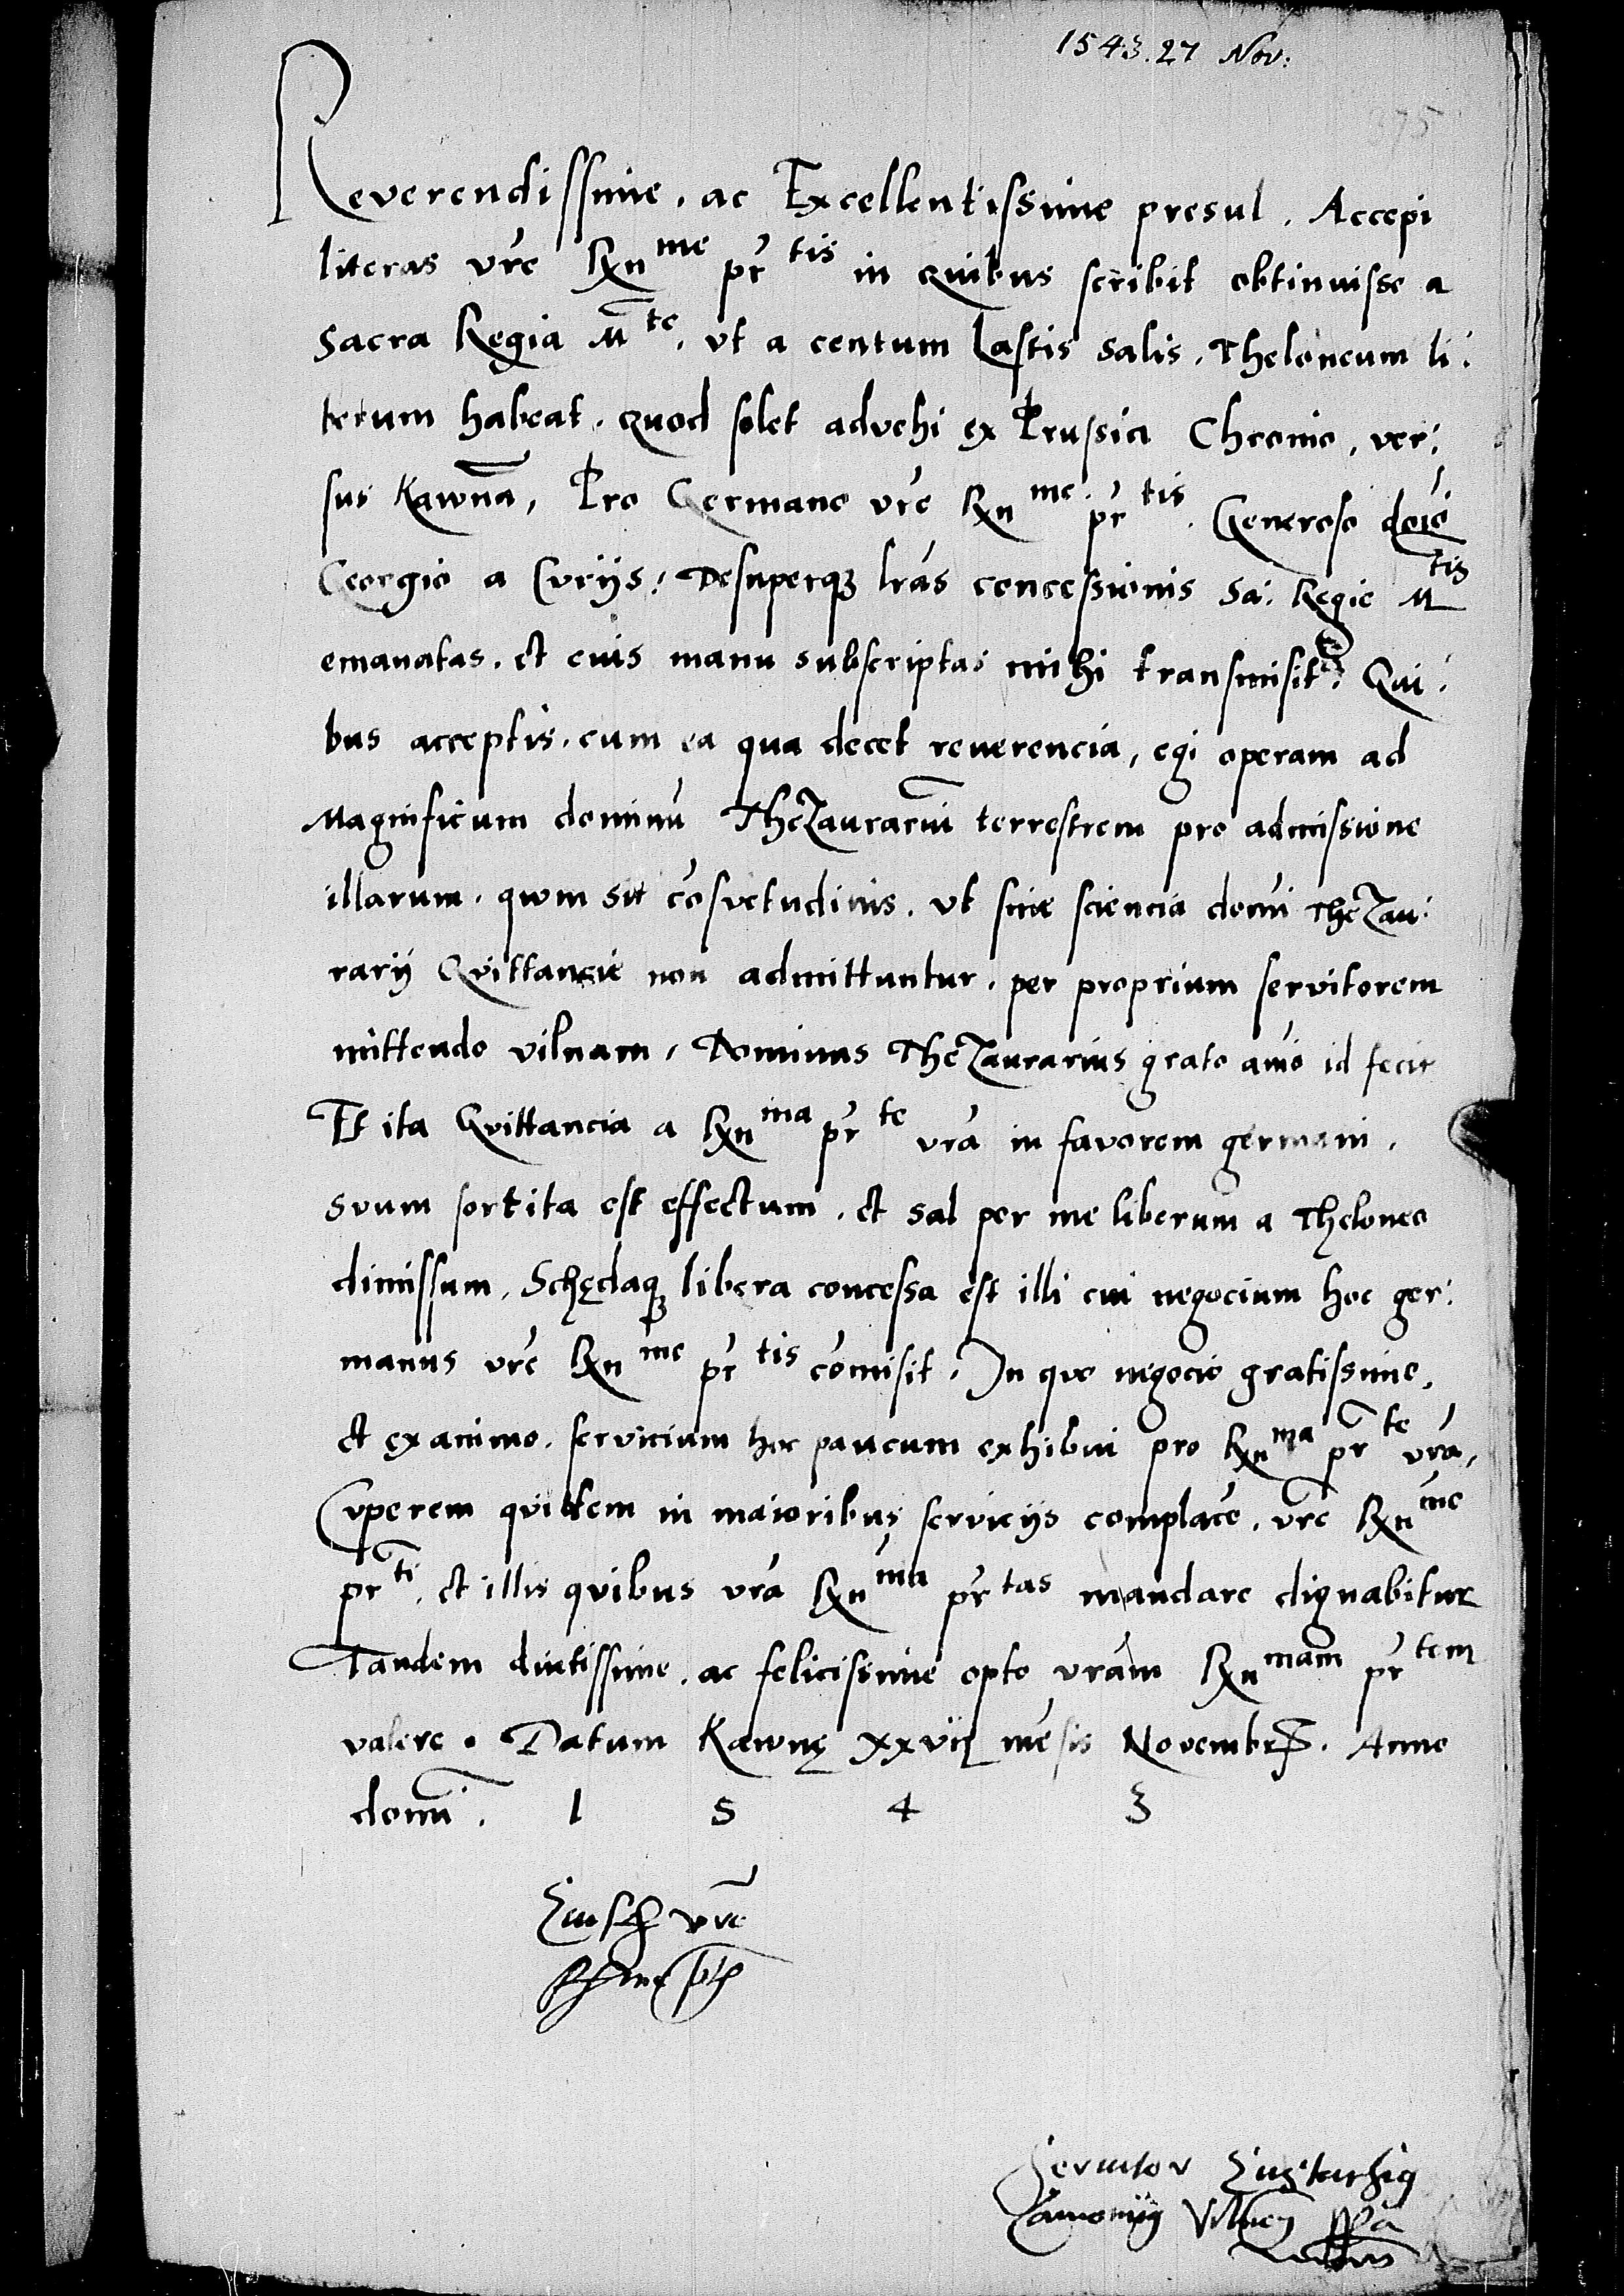 1543. 27 Nov:
375
Reverendissime. ac Excellentissime presul. Accepi
literas vr̃e Rxn^me pr̃^tis in quibus scribit obtinuisse a
Sacra Regia M^te. vt a centum Lastis Salis. Theloneum li:
berum habeat. quod solet advehi ex Prussia Chronio, ver:
sus Kawnā, Pro Germano vr̃e Rxn^me pr̃^tis. Generoso dn̄o
Georgio a Curijs: Desuperq₃ lr̃as concessionis Sa: Regie M^tis
emanatas. et eius manu subscriptas mihi transmisit: Qui:
bus acceptis. cum ea qua decet reuerencia, egi operam ad
Magnificum dominū Thezaurariū terrestrem pro admissione
illarum. qwm sit cōsvetudinis. vt sine sciencia domī Thezau:
rarij Qvittancie non admittuntur. per proprium servitorem
mittendo vilnam, Dominus Thezaurarius grato aīo id fecit
Et ita Qvittancia a Rxn^ma pr̃^te vr̃a in favorem germani.
svum sortita est effectum. et sal per me liberum a Theloneo
dimissum, Schędaq₃ libera concessa est illi cui negocium hoc ger:
manus vr̃e Rxn^me pr̃^tis cōmisit. In quo negocio gratissime,
et ex animo. servicium hoc paucum exhibui pro Rxn^ma pr̃^te vr̃a,
Cuperem quidem in maioribus servicijs complacē. vr̃e Rxn^me
pr^ti. et illis quibus vr̃a Rxn^ma pr̃^tas mandare dignabitur
Tandem diutissime. ac felicissime opto vr̃am Rxn^mam pr̃^tem
valere. Datum Kawnę xxvij mēsis Novembr. Anno
domī. 1 5 4 3
vr̃e
Servitor
Vilnen